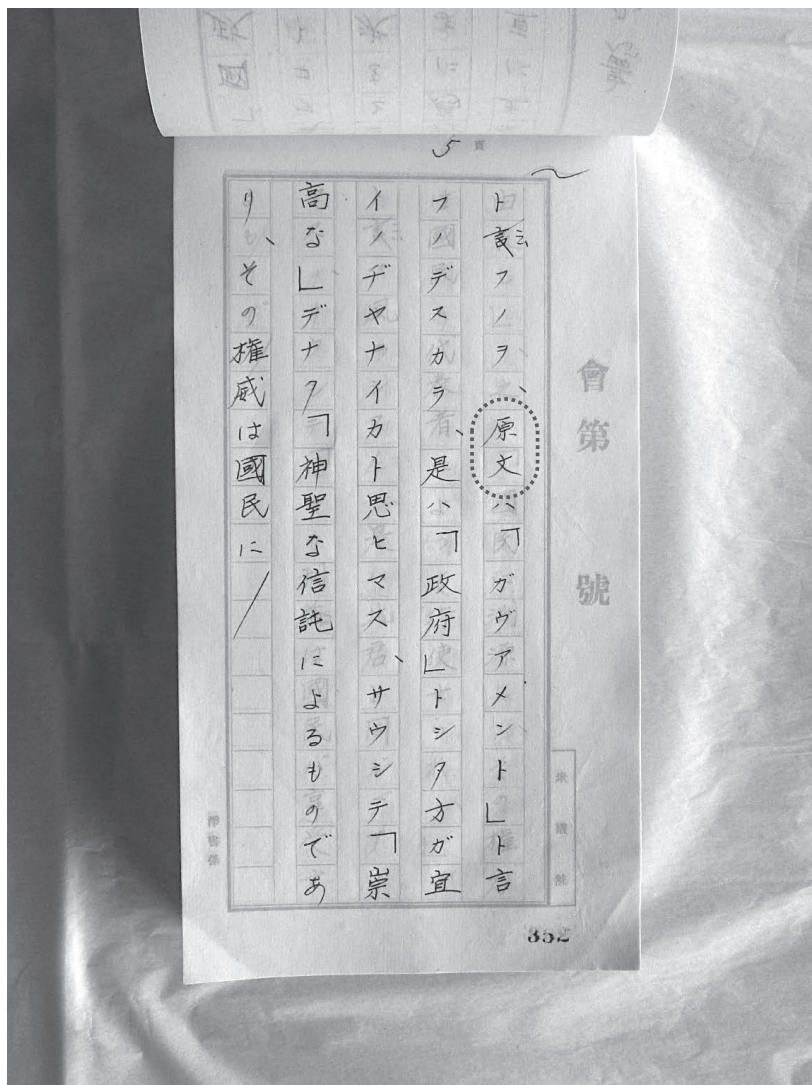 頁
5
會第 號
ト言云フノヲ、原文ハ「ガヴアメント」ト言
フノデスカラ、是ハ「政府」トシタ方ガ宜
イノヂヤナイカト思ヒマス、サウシテ「崇
高な」デナク「神聖な信託によるものであ
り、その権威は國民に
衆議院
淨書係
352